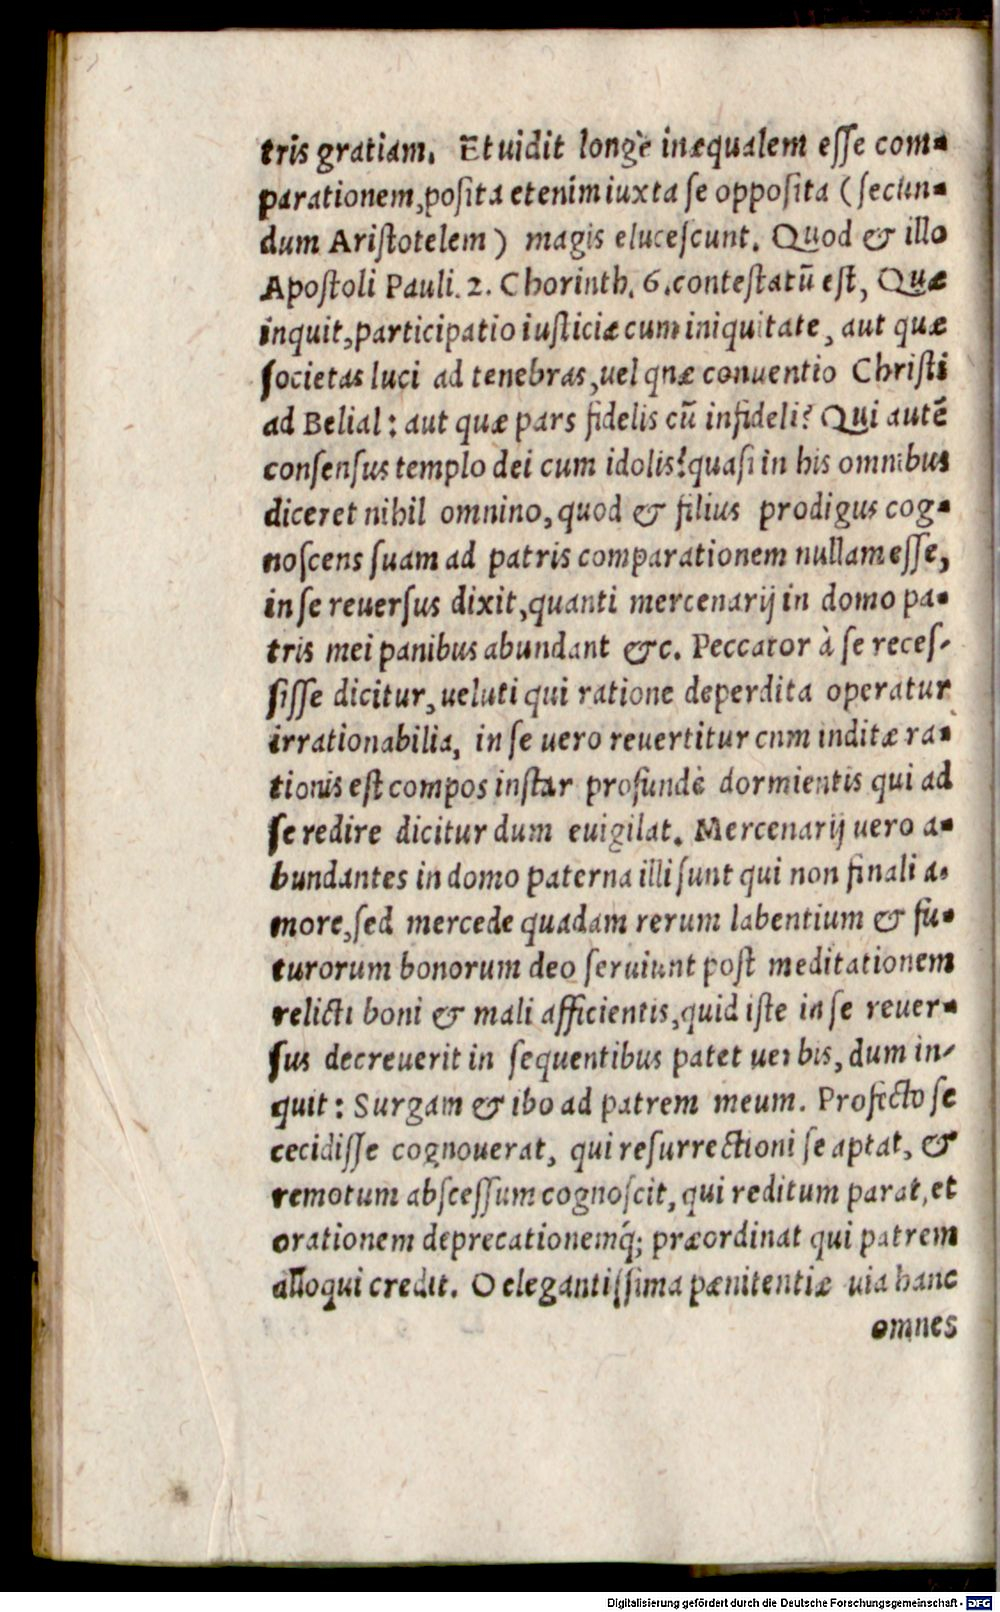 tris gratiam. Et uidit longè inæqualem esse com-
parationem, posita etenim iuxta se opposita (secun-
dum Aristotelem) magis elucescunt. Quod & illo
Apostoli Pauli. 2. Chorinth. 6. contestatū est, Quæ
inquit, participatio iusticiæ cum iniquitate, aut quæ
societas luci ad tenebras, uel qnæ conuentio Christi
ad Belial: aut quæ pars fidelis cū infideli? Qui autē
consensus templo dei cum idolis? quasi in his omnibus
diceret nihil omnino, quod & filius prodigus cog-
noscens suam ad patris comparationem nullam esse,
in se reuersus dixit, quanti mercenarij in domo pa-
tris mei panibus abundant &c. Peccator à se reces-
sisse dicitur, ueluti qui ratione deperdita operatur
irrationabilia, in se uero reuertitur cnm inditæ ra-
tionis est compos instar profundè dormientis qui ad
se redire dicitur dum euigilat. Mercenarij uero a-
bundantes in domo paterna illi sunt qui non finali a-
more, sed mercede quadam rerum labentium & fu-
turorum bonorum deo seruiunt post meditationem
relicti boni & mali afficientis, quid iste in se reuer-
sus decreuerit in sequentibus patet uerbis, dum in-
quit: Surgam & ibo ad patrem meum. Profecto se
cecidisse cognouerat, qui resurrectioni se aptat, &
remotum abscessum cognoscit, qui reditum parat, et
orationem deprecationemq́; præordinat qui patrem
alloqui credit. O elegantissima pænitentiæ uia hanc
omnes
Digitalisierung gefördert durch die Deutsche Forschungsgemeinschaft - DFG